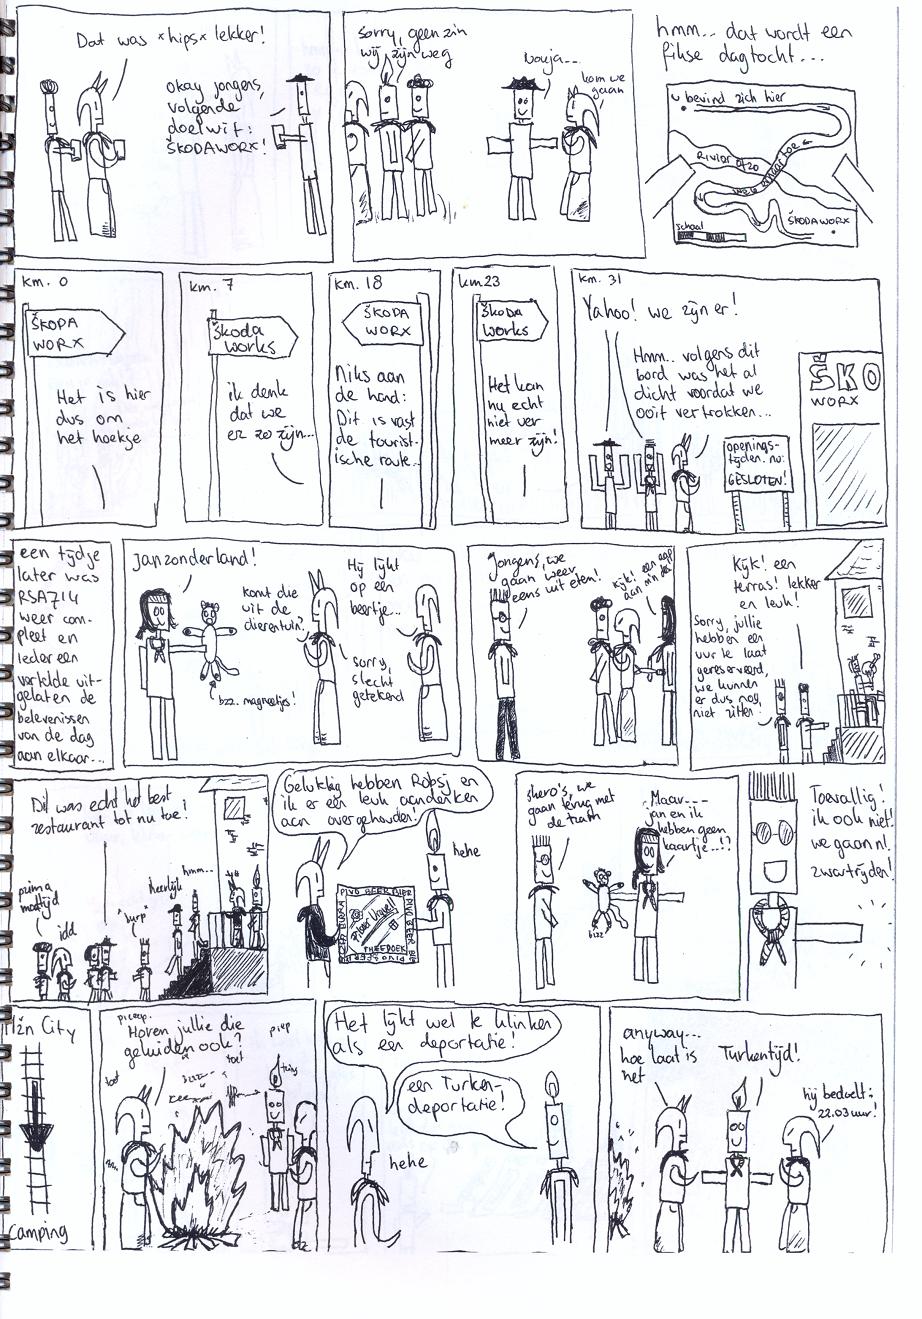 Dat was *hips* lekker!
okay jongens,
volgende
doelwit:
ŠKODAWORX!
sorry, geen zin
wij zijn weg
nouja...
kom we
gaan
hmm... dat wordt een
fikse dagtocht...
u bevind zich hier
ŠKODAWORX
schaal
km. 0
ŠKODA
WORX
Het is hier
dus om
het hoekje
km. 7
Škoda
works
ik denk
dat we
er zo zijn...
km. 18
ŠKODA
WORX
Niks aan
de hand:
Dit is vast
de tourist-
ische route..
km 23
Škoda
works
Het kan
nu echt
niet ver
meer zijn!
km. 31
Yahoo! we zijn er!
Hmm.. volgens dit
bord was het al
dicht voordat we
ooit vertrokken...
openings-
tijden. nu:
GESLOTEN!
ŠKO
WORX
een tijdje
later was
RSA714
weer com-
pleet en
iedereen
vertelde uit-
gelaten de
belevenissen
van de dag
aan elkaar...
Janzonderland!
komt die
uit de
dierentuin?
Hij lijkt
op een
beertje...
bzz. magneetjes!
sorry,
slecht
getekend
Jongens, we
gaan weer
eens uit eten!
Kijk! een aap
Kijk! een
terras! lekker
en leuk!
Sorry, jullie
hebben een
uur te laat
gereserveerd,
we kunnen
er dus nog
niet zitten!
Dit was echt het best
restaurant tot nu toe!
prima
maaltijd
idd
*burp*
heerlijk
hmm...
Gelukkig hebben Robsij en
ik er een leuk aandenken
aan overgehouden!
hehe
PIVO BEER BIER
Pilsner Urquell
THEEDOEK
skero's, we
gaan terug met
de tram
Maar....
jan en ik
hebben geen
kaartje..!?
bzz
Toevallig!
ik ook niet!
we gaan nl.
zwartrijden!
Plzn City
Camping
piceep.
Horen jullie die
geluiden ook?
toet
toet
piep
tring
Het lijkt wel te klinken
als een deportatie!
een Turken-
deportatie!
hehe
anyway...
hoe laat is
het
Turkentijd!
hij bedoelt:
22.03 uur!